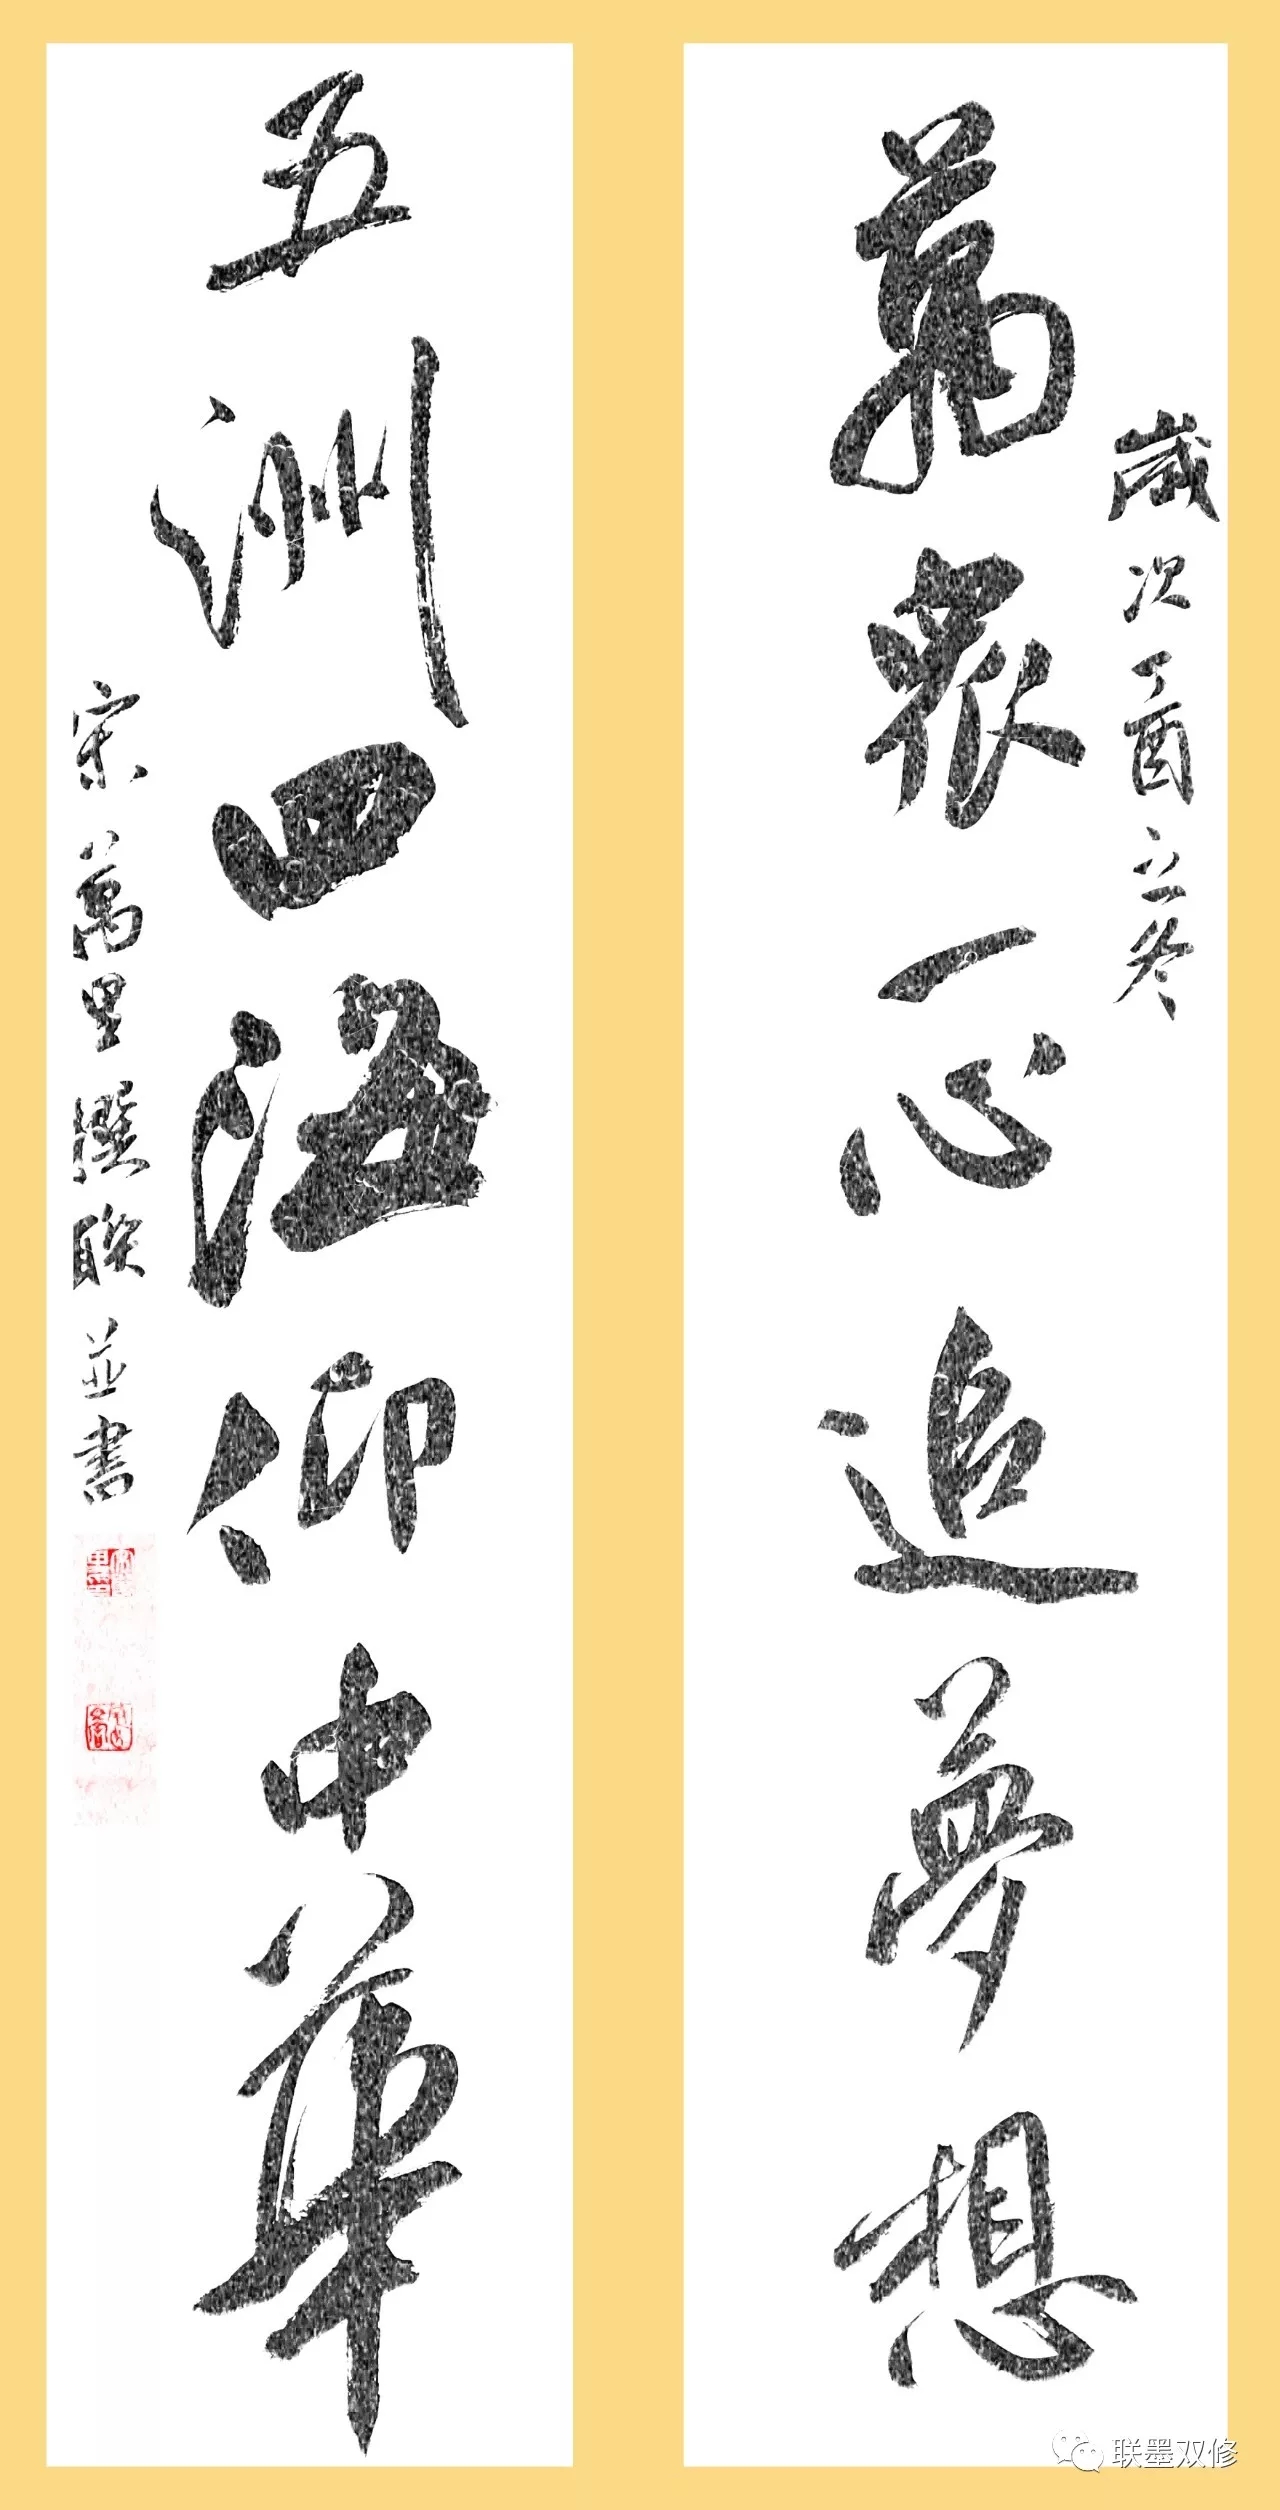 萬衆一心追夢想
歲次丁酉立冬
五洲四海仰中華
宋萬里撰聯並書
联墨双修